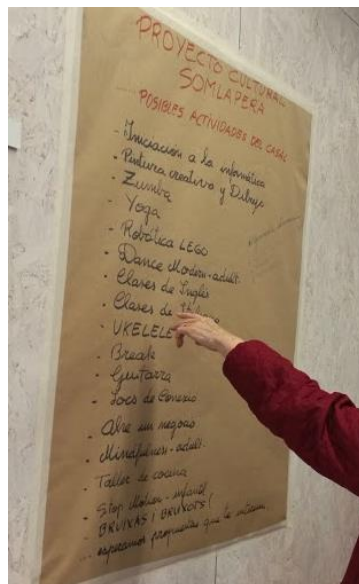 PROYECTO CULTURAL
SOMLAPERA
POSIBLES ACTIVIDADES DEL CASAL
- Iniciación a la informática
- Pintura creativa y Dibujo
- Zumba
- Yoga
- Robótica LEGO
- Dance Modern-adult.
- Clases de Inglés
- Clases de
- UKELELE
- Break
- Guitarra
- Jocs de Conexió
- Abre un negocio
- Mindfulness-adult.
- Taller de cocina
- Stop Motion-infantil
- BRUIXAS I BRUIXOTS!
- esperamos propuestas que te